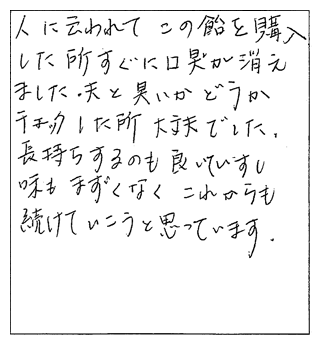 人に云われて この飴を購入
した所すぐに口臭が消え
ました.夫と臭いかどうか
チェックした所 大丈夫でした.
長持ちするのも良いですし
味も まずくなく これからも
続けていこうと思っています.